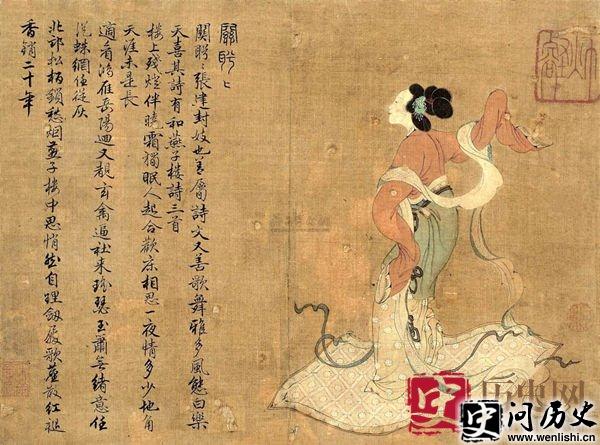 關盼〻
關盼〻張建封妓也善屬詩文又善歌舞雅多風態白樂
天喜其詩有和燕子樓詩三首
樓上殘燈伴曉霜獨眠人起合歡床相思一夜情多少地角
天涯未是長
適看鴻雁岳陽迴又覩玄禽逼社來瑤瑟玉簫無緒意任
從蛛網任從灰
北邙松柏鎖愁烟燕子樓中思悄然自理劔履歌塵散紅袖
香銷二十年
问历史
www.wenlishi.cn